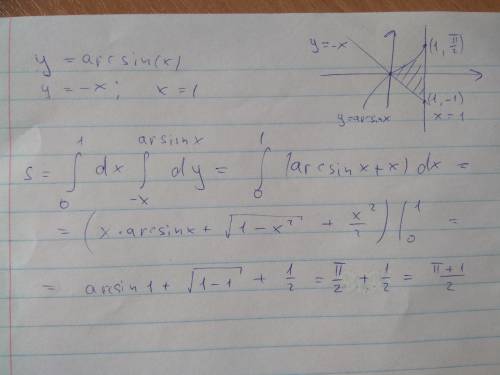 y = arcsin(x)
y = -x; x = 1
y=-x
(1, π/2)
(1, -1)
x = 1
y=arcsinx
S = ∫₀¹ dx ∫₋ₓ^(arcsinx) dy = ∫₀¹ (arcsinx+x) dx =
= (x·arcsinx + √(1-x²) + x²/2) |₀¹ =
= arcsin1 + √(1-1) + 1/2 = π/2 + 1/2 = (π+1)/2